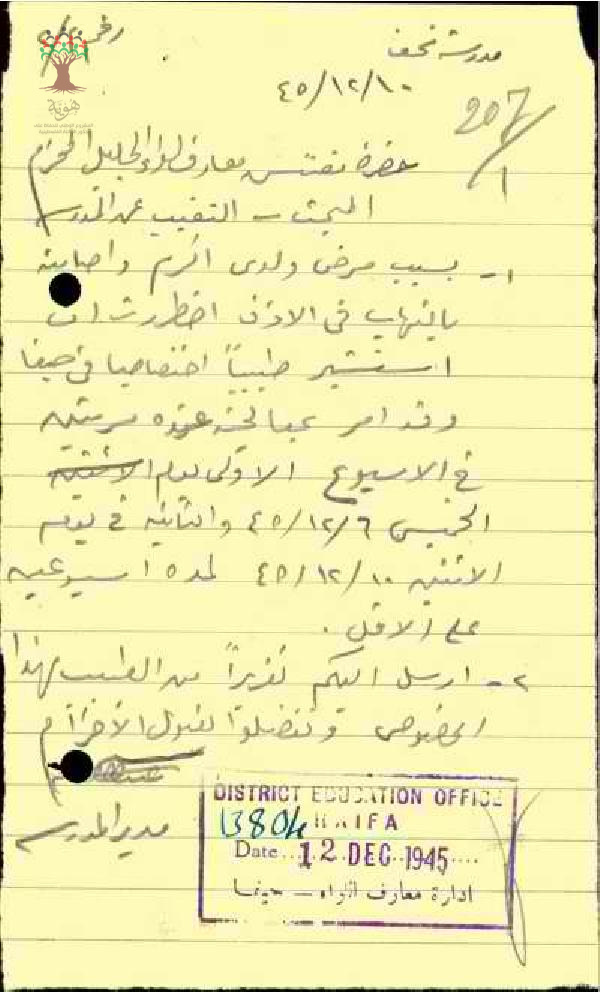 مدرسة نحف
٤٥/١٢/١٠
207/1
حضرة مفتش معارف لواء الجليل المحترم
المبحث - التغيب عن المدرسة
١- بسبب مرض ولدي اكرم واصابته
بالتهاب في الاذن اضطررت ان
استشير طبيباً اختصاصيا في حيفا
وقد امر بمعالجته عنده مرتين
في الاسبوع الاولى يوم الاثنين
الخميس ٤٥/١٢/٦ والثانية في يوم
الاثنين ٤٥/١٢/١٠ لمدة اسبوعين
على الاقل.
٢- ارسل اليكم تقريراً من الطبيب بهذا
الخصوص وتفضلوا بقبول الاحترام
مدير المدرسة
DISTRICT EDUCATION OFFICE
HAIFA
Date 12 DEC 1945
ادارة معارف اللواء - حيفا
هوية